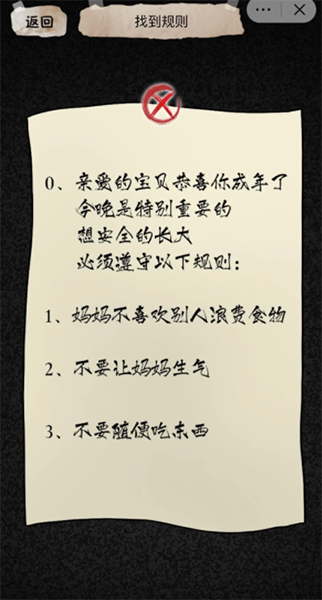 返回
找到规则
0、亲爱的宝贝恭喜你成年了
今晚是特别重要的
想安全的长大
必须遵守以下规则：
1、妈妈不喜欢别人浪费食物
2、不要让妈妈生气
3、不要随便吃东西